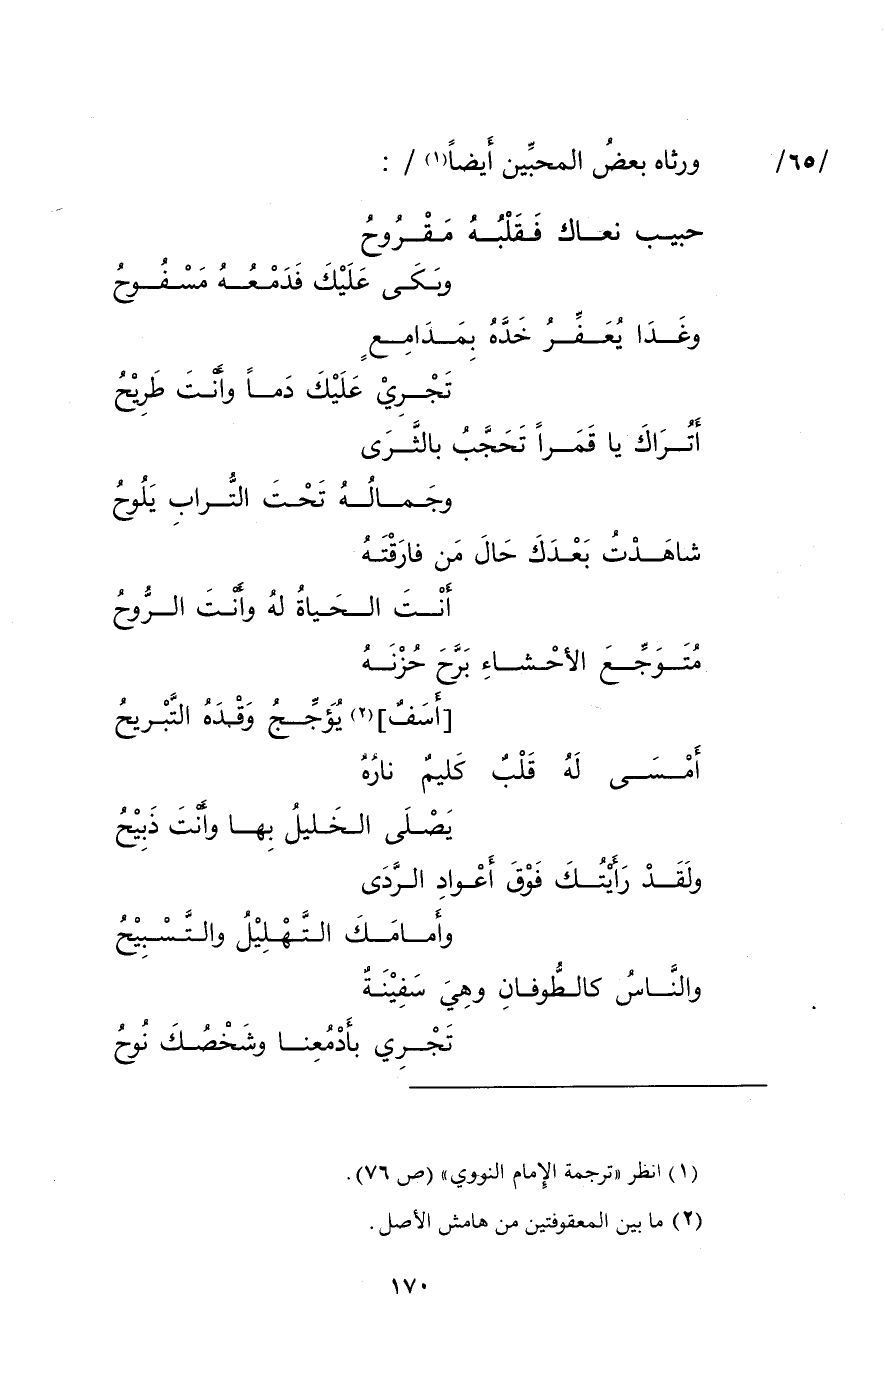 /٦٥/ ورثاه بعضُ المحبِّين أَيضاً(١) / :
حبيب نعاك فَقَلْبُهُ مَقْرُوحُ
وبَكَى عَلَيْكَ فَدَمْعُهُ مَسْفُوحُ
وغَدَا يُعَفِّرُ خَدَّهُ بِمَدَامِعٍ
تَجْرِيْ عَلَيْكَ دَماً وأَنْتَ طَرِيْحُ
أَتُرَاكَ يا قَمَراً تَحَجَّبُ بالثَّرَى
وجَمالُهُ تَحْتَ التُّرابِ يَلُوحُ
شاهَدْتُ بَعْدَكَ حَالَ مَن فارَقْتَهُ
أَنْتَ الحَياةُ لهُ وأَنْتَ الرُّوحُ
مُتَوَجِّعَ الأحْشاءِ بَرَّحَ حُزْنَهُ
[أَسَفٌ](٢) يُؤَجِّجُ وَقْدَهُ التَّبْريحُ
أَمْسَى لَهُ قَلْبٌ كَليمٌ نارُهُ
يَصْلَى الخَليلُ بِها وأَنْتَ ذَبِيْحُ
ولَقَدْ رَأَيْتُكَ فَوْقَ أَعْوادِ الرَّدَى
وأَمامَكَ التَّهْلِيْلُ والتَّسْبِيْحُ
والنَّاسُ كالطُّوفانِ وهِيَ سَفِيْنَةٌ
تَجْرِي بأَدْمُعِنا وشَخْصُكَ نُوحُ
(١) انظر «ترجمة الإِمام النووي» (ص ٧٦).
(٢) ما بين المعقوفتين من هامش الأصل.
١٧٠